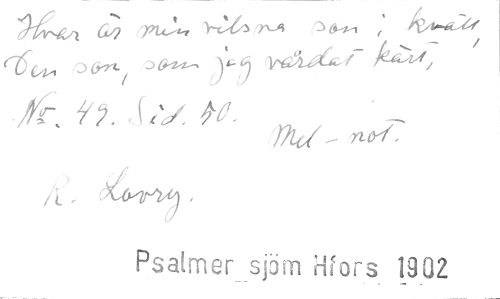 Hvar är min vilsna son i kväll,
Den son, som jag vårdat kärt,
No. 49. Sid. 50.
Mel - not.
R. Lowry.
Psalmer sjöm Hfors 1902